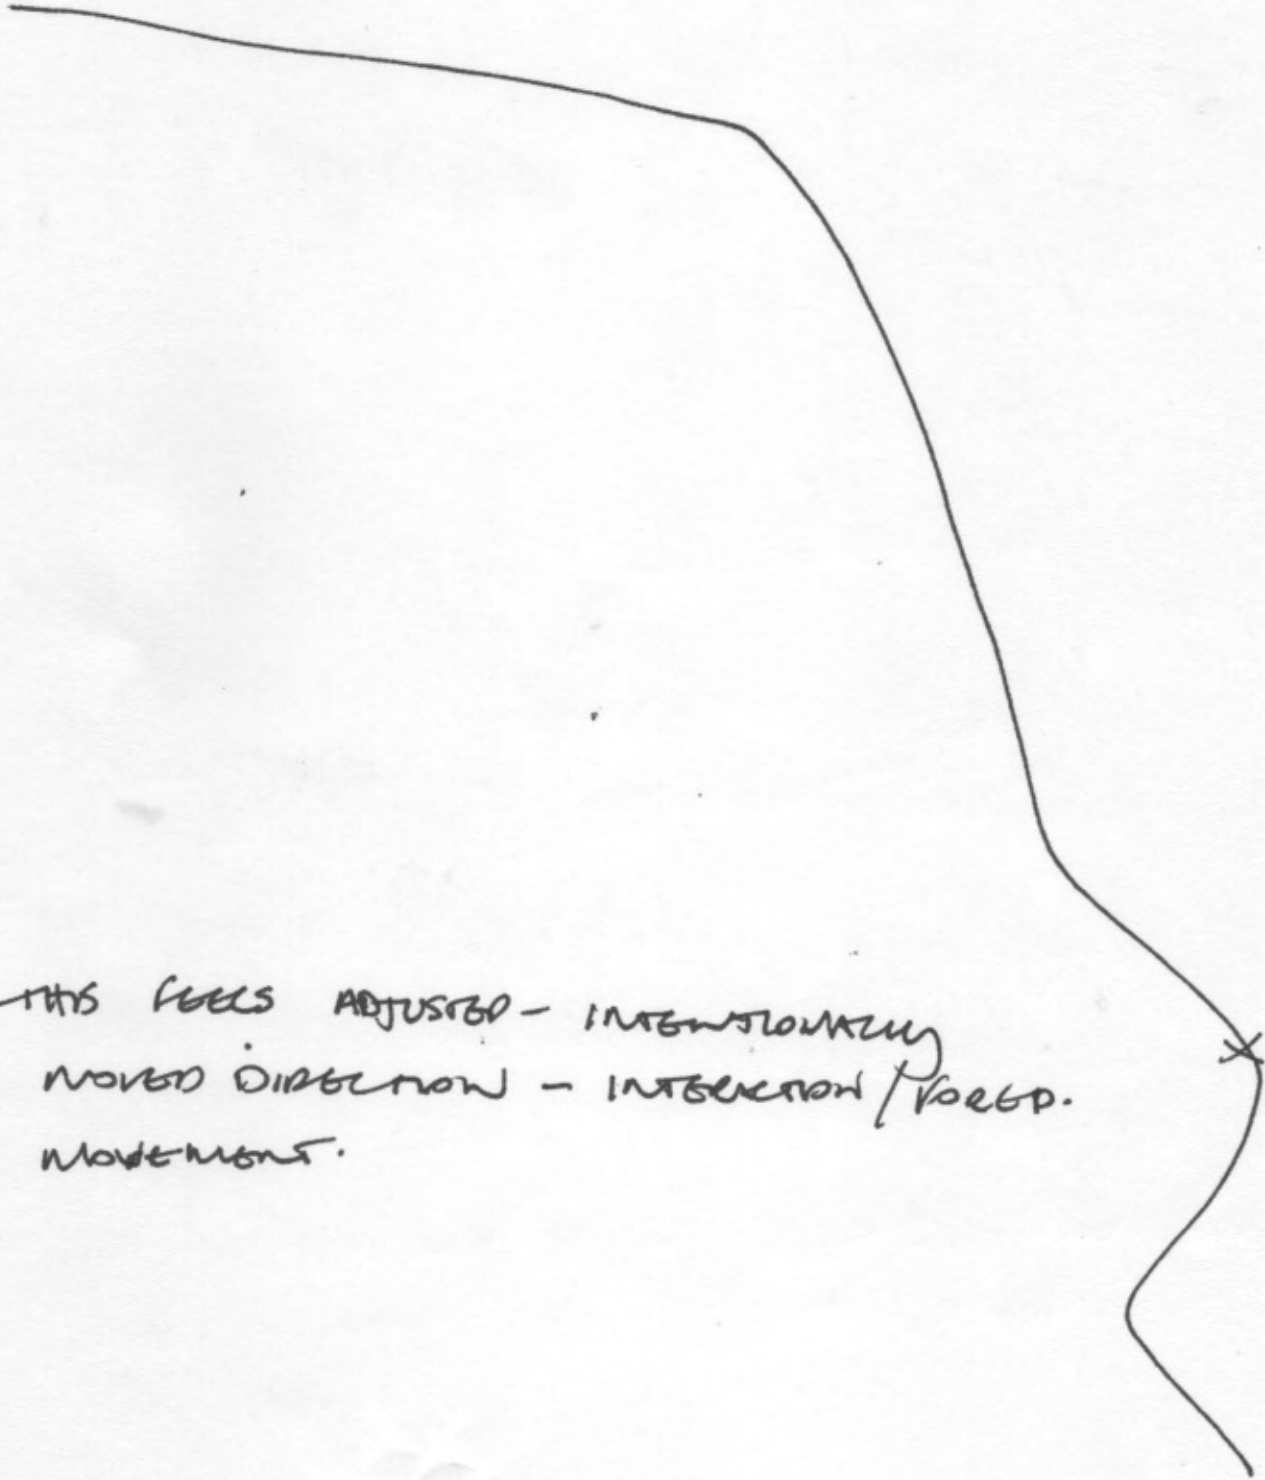 THIS FEELS ADJUSTED - INTENTIONALLY
MOVED DIRECTION - INTERACTION / FORED.
MOVEMENT.